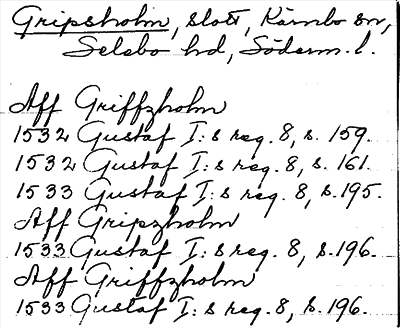 Gripsholm, slott, Kärnbo sn,
Selebo hd, Söderm. l.
Aff Griffzholm
1532 Gustaf I:s reg. 8, s. 159.
1532 Gustaf I:s reg. 8, s. 161.
1533 Gustaf I:s reg. 8, s. 195.
Aff Gripzholm
1533 Gustaf I:s reg. 8, s. 196.
Aff Griffzholm
1533 Gustaf I:s reg. 8, s. 196.